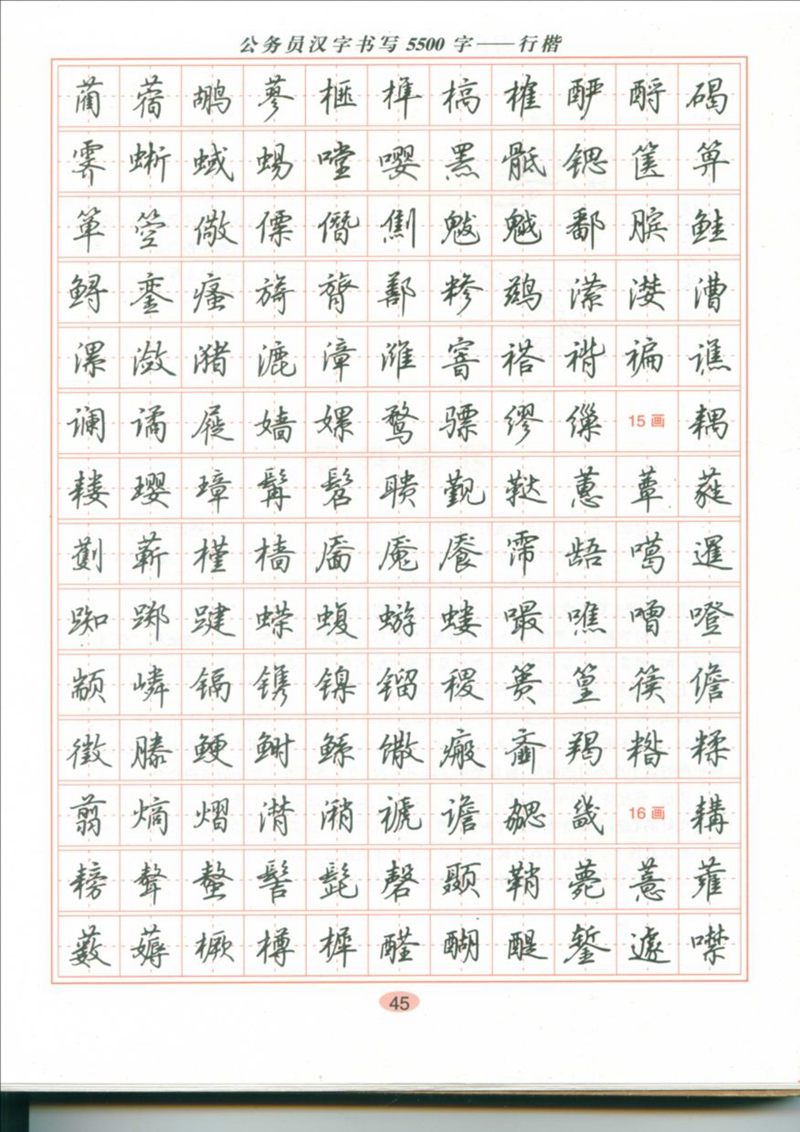 公务员汉字书写5500字——行楷
蔺蓿鹕蓼榧榫槁榷酽酹碣
霁蜥蜮蜴嘡嘤罴骶锶箧箅
箪箜儆僳僭劁魃魆鄱膑鲑
鲟銮瘙旖膂鄯糁鹚潆漤漕
漯潋潴漉漳潍窨褡褙褊谯
谰谲屣嫱嫘鹜骠缪缫15画耦
耧璎璋髯髫聩觐鞑蕙蕈蕤
劐蕲槿樯靥魇餍霈龉噶暹
踟踯踺蝾蝮蝣蝼嘬噍噌噔
颛嶙镉镌镍镏稷篑篁篌儋
徵滕鲠鲥鲧馓瘢齑羯糌糅
翦熵熠潸潲褫谵勰畿16画耩
耪聱螯髻髭磬颞鞘薨薏蕹
薮薅橛樽樨醛醐醍錾遽噤
45